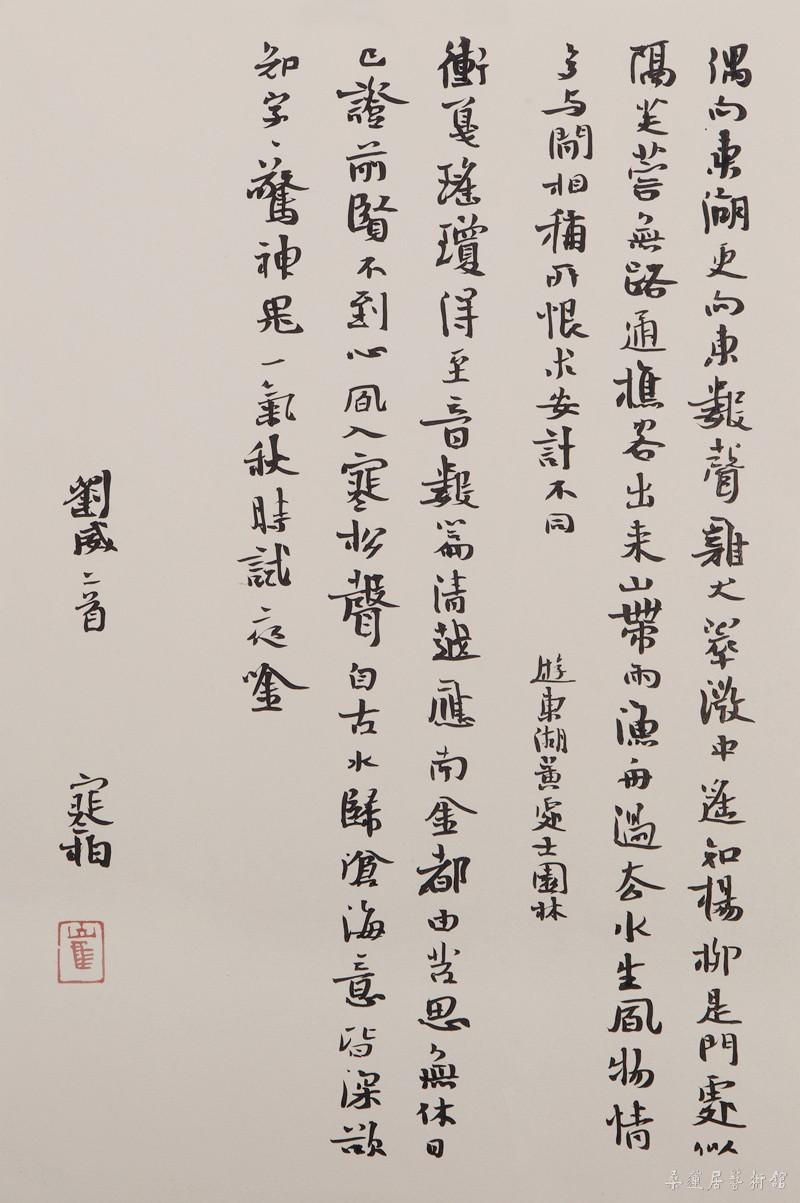 偶向東湖更向東數聲雞犬翠微中遙知楊柳是門處似
隔芙蓉無路通樵客出来山帶雨漁舟過去水生風物情
多与閒相稱所恨求安計不同
遊東湖黃處士園林
衝戛瑤瓊得至音數篇清越應南金都由苦思無休日
已證前賢不到心風入寒松聲自古水歸滄海意皆深欲
知字〻驚神鬼一氣秋時試夜唫
劉威二首
寒柏
崔
桑蓮居藝術館